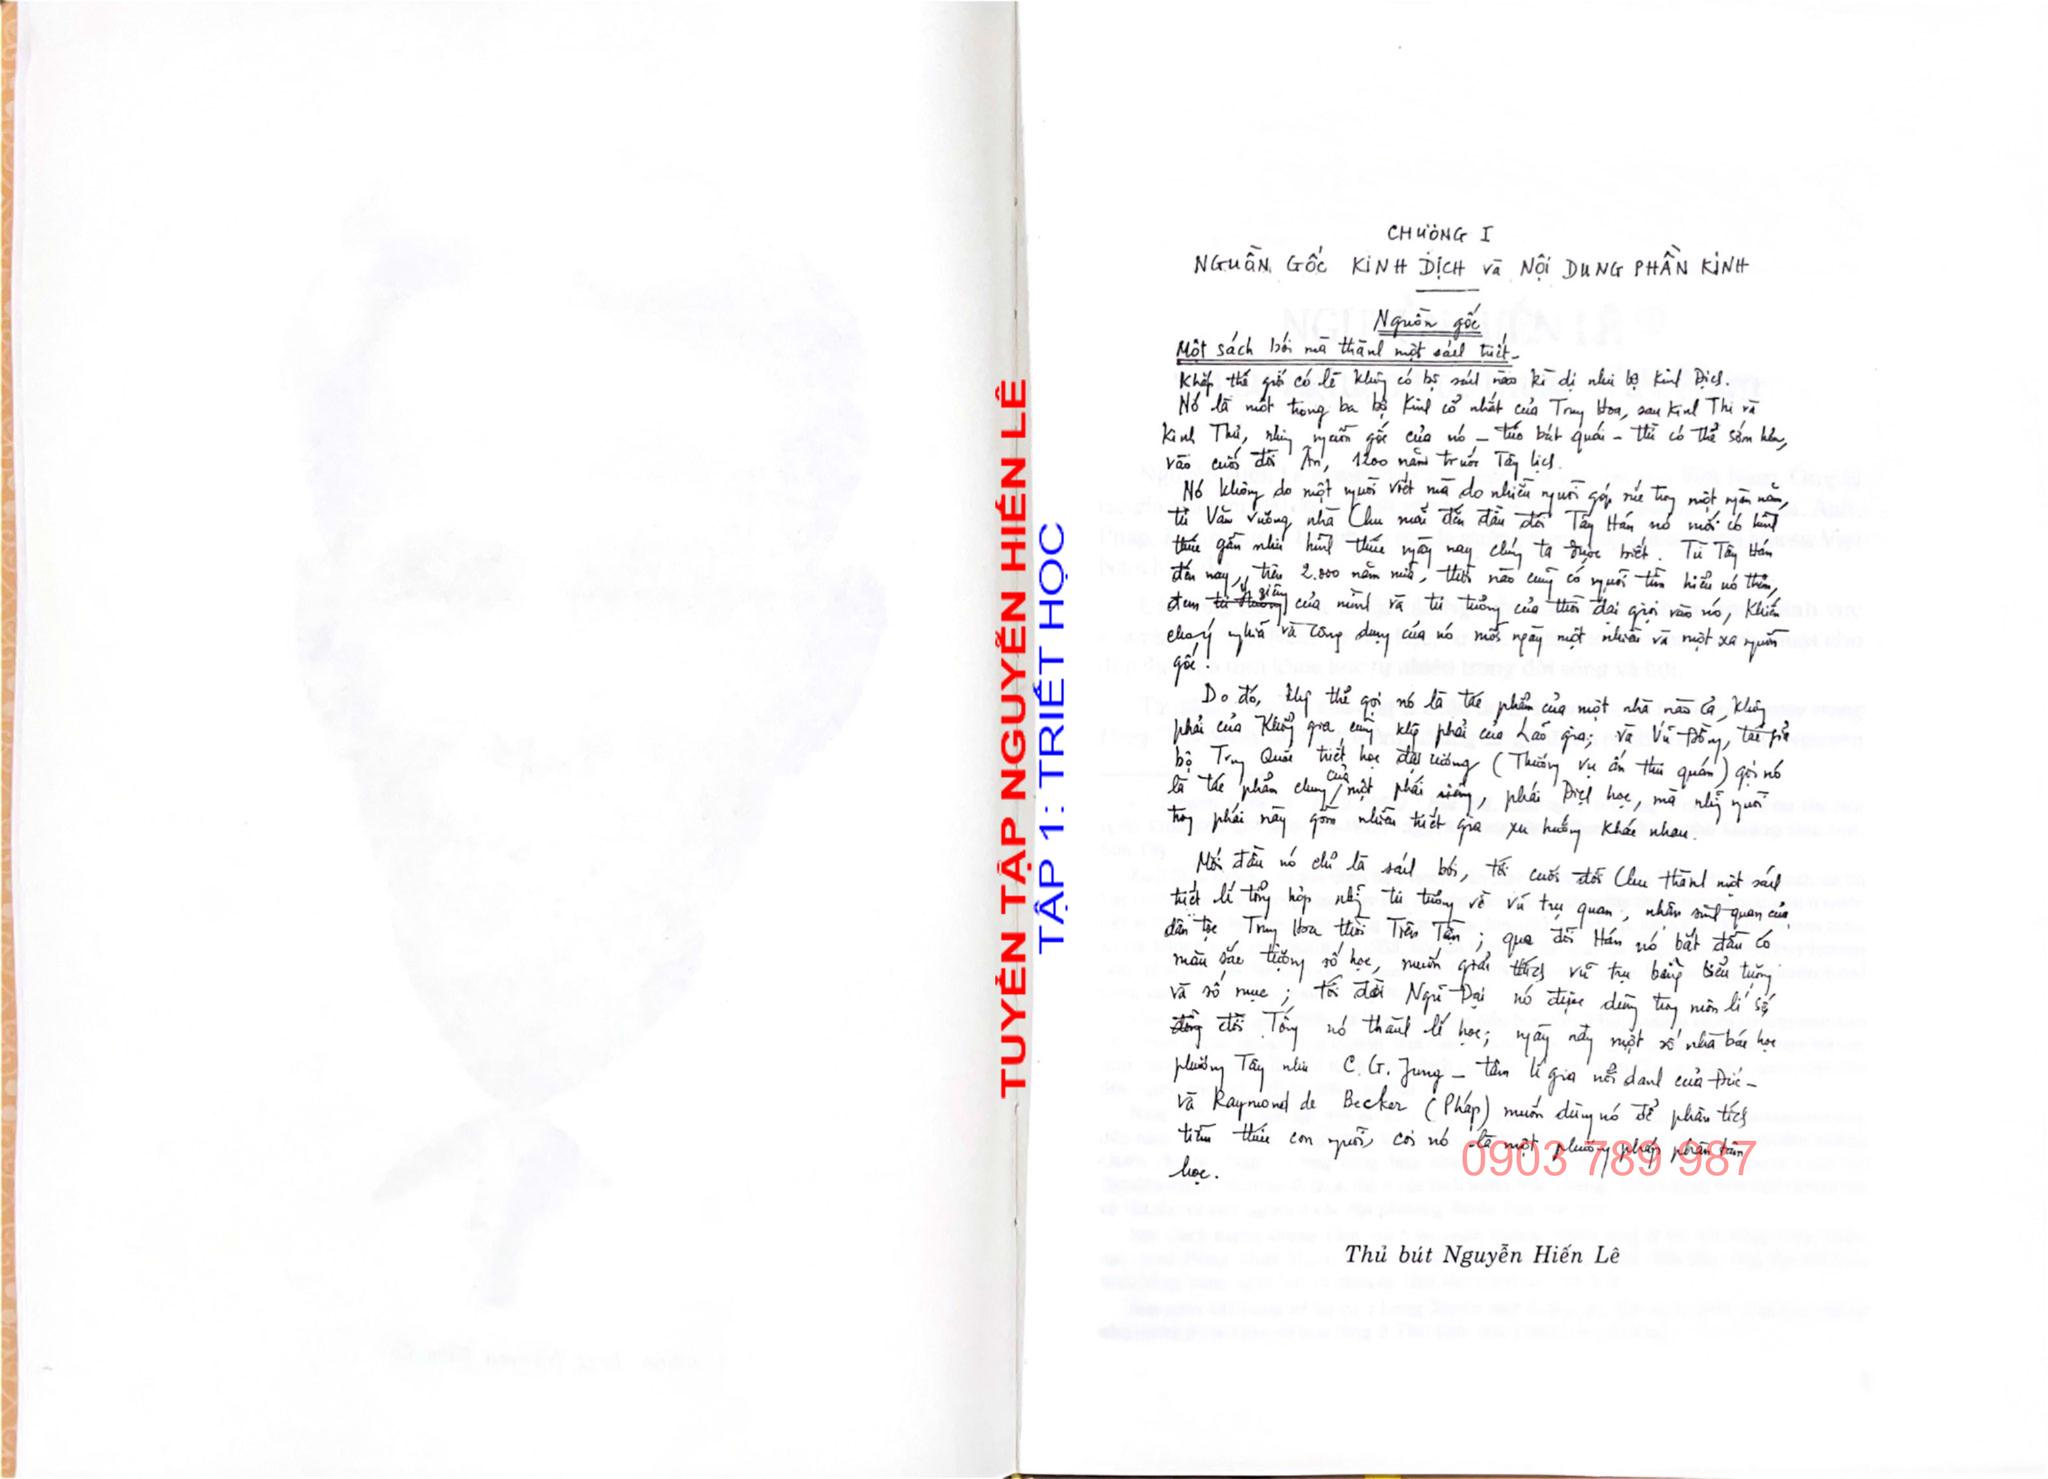 TUYỂN TẬP NGUYỄN HIẾN LÊ
TẬP 1: TRIẾT HỌC
CHƯƠNG I
NGUỒN GỐC KINH DỊCH và NỘI DUNG PHẦN KINH
Nguồn gốc
Một sách bói mà thành một sách triết
Khắp thế giới có lẽ không có bộ sách nào kì dị như bộ Kinh Dịch.
Nó là một trong ba bộ Kinh cổ nhất của Trung Hoa, sau Kinh Thi và
Kinh Thư, nhưng nguồn gốc của nó – tức bát quái – thì có thể sớm hơn,
vào cuối đời Ân, 1200 năm trước Tây lịch.
Nó không do một người viết mà do nhiều người góp sức trong một ngàn năm,
từ Văn Vương nhà Chu mãi đến đầu đời Tây Hán nó mới có hình
thức gần như hình thức ngày nay chúng ta được biết. Từ Tây Hán
đến nay, trên 2.000 năm nữa, thời nào cũng có người tìm hiểu nó thêm,
đem ý riêng của mình và tư tưởng của thời đại giải vào nó, khiến
cho ý nghĩa và công dụng của nó mỗi ngày một nhiều và một xa nguồn
gốc.
Do đó, không thể gọi nó là tác phẩm của một nhà nào cả, không
phải của Khổng gia, cũng không phải của Lão gia; và Vũ Đồng, tác giả
bộ Trung Quốc triết học đại cương (Thương vụ ấn thư quán) gọi nó
là tác phẩm chung của một phái riêng, phái Dịch học, mà những người
trong phái này gồm nhiều triết gia xu hướng khác nhau.
Mới đầu nó chỉ là sách bói, tới cuối đời Chu thành một sách
triết lí tổng hợp những tư tưởng về vũ trụ quan, nhân sinh quan của
dân tộc Trung Hoa thời Tiên Tần; qua đời Hán nó bắt đầu có
màu sắc tượng số học, muốn giải thích vũ trụ bằng biểu tượng
và số mục; tới đời Ngũ Đại nó được dùng trong môn lí số
đời Tống nó thành lí học; ngày nay một số nhà bác học
phương Tây như C.G. Jung – tâm lí gia nổi danh của Đức –
và Raymond de Becker (Pháp) muốn dùng nó để phân tích
tiềm thức con người, coi nó là một phương pháp phân tâm
học.
0903 789 987
Thủ bút Nguyễn Hiến Lê